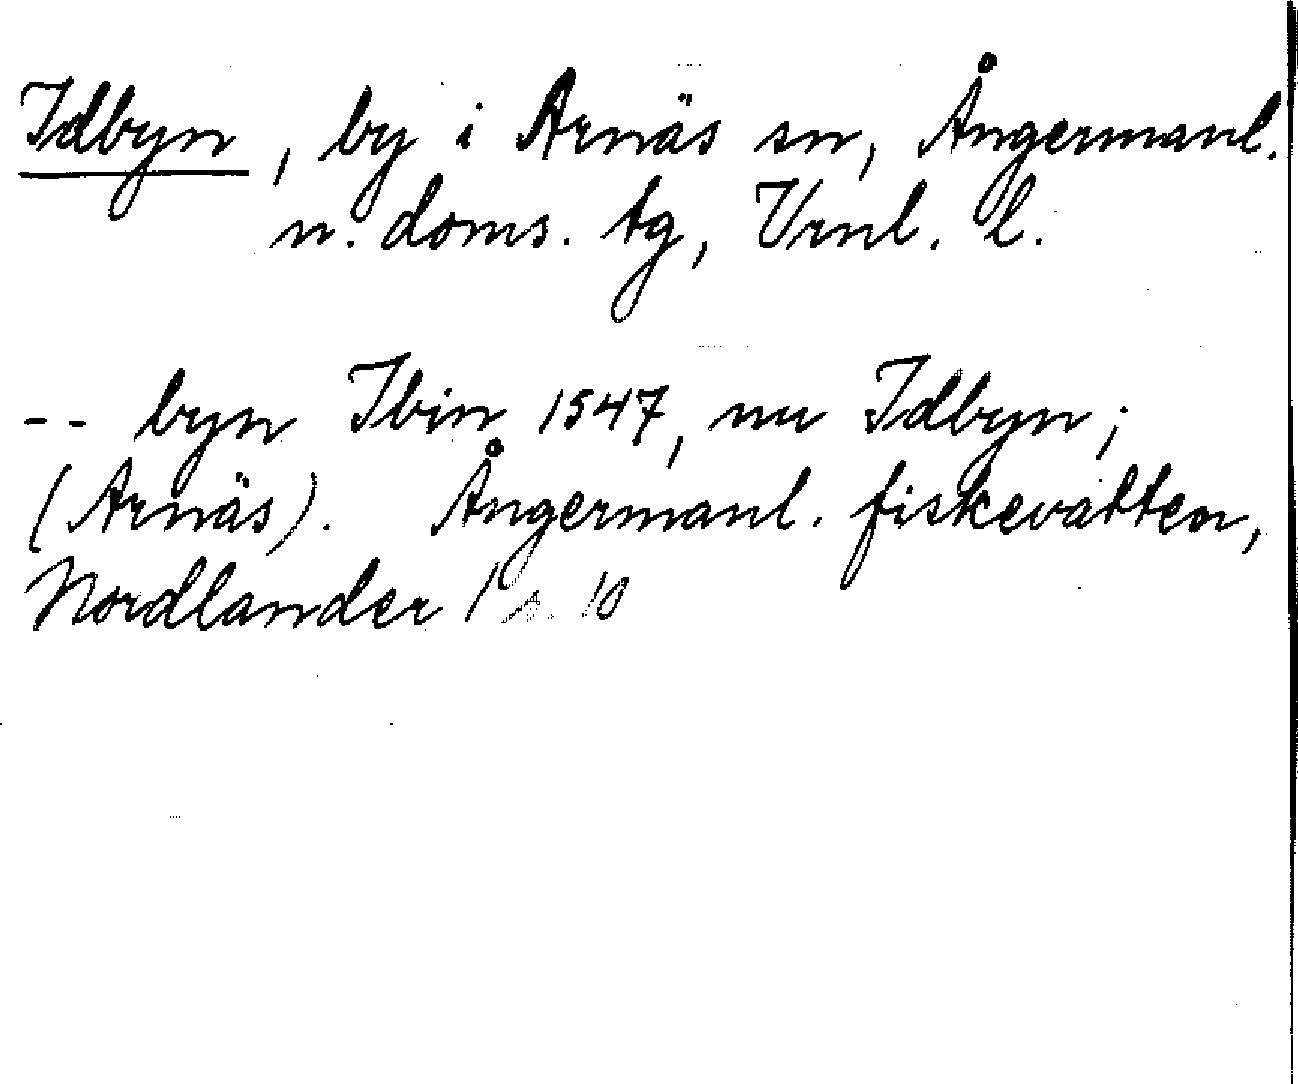 Idbyn, by i Arnäs sn, Ångermanl.
n. doms. tg, Vrnl. l.
-- byn Ibin 1547, nu Idbyn;
(Arnäs). Ångermanl. fiskevatten,
Nordlander 1 s. 10